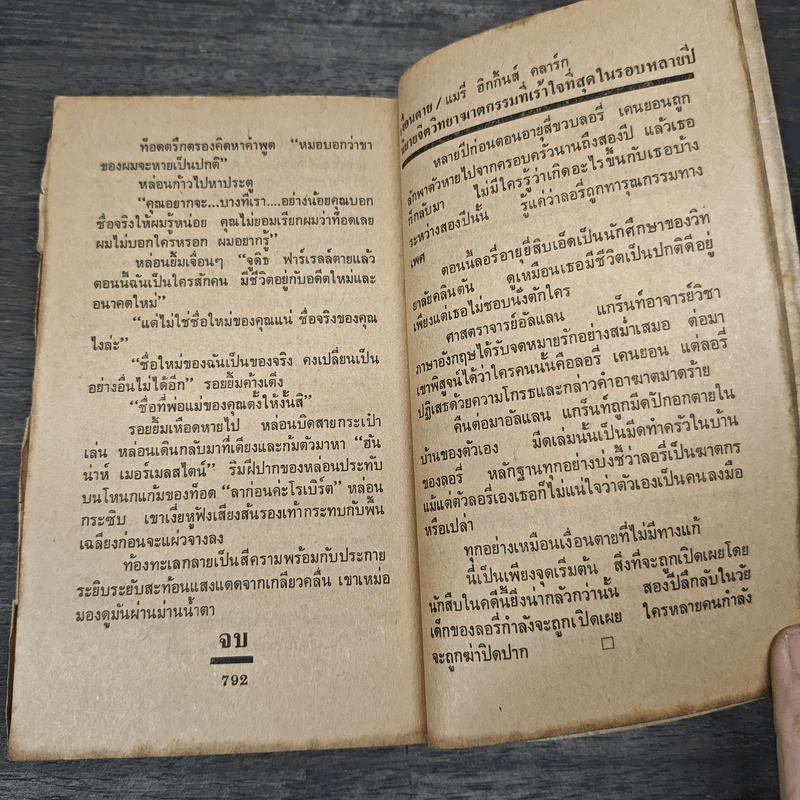 ท็อดตรึกตรองคิดหาคำพูด “หมอบอกว่าขา
ของผมจะหายเป็นปกติ”
หล่อนก้าวไปหาประตู
“คุณอยากจะ...บางทีเรา....อย่างน้อยคุณบอก
ชื่อจริงให้ผมรู้หน่อย คุณไม่ยอมเรียกผมว่าท็อดเลย
ผมไม่บอกใครหรอก ผมอยากรู้”
หล่อนยิ้มเจื่อนๆ “จูดิธ ฟาร์เรลล์ตายแล้ว
ตอนนี้ฉันเป็นใครสักคน มีชีวิตอยู่กับอดีตใหม่และ
อนาคตใหม่”
“แต่ไม่ใช่ชื่อใหม่ของคุณแน่ ชื่อจริงของคุณ
ไงล่ะ”
“ชื่อใหม่ของฉันเป็นของจริง คงเปลี่ยนเป็น
อย่างอื่นไม่ได้อีก” รอยยิ้มค้างเติ่ง
“ชื่อที่พ่อแม่ของคุณตั้งให้งั้นสิ”
รอยยิ้มเหือดหายไป หล่อนบิดสายกระเป๋า
เล่น หล่อนเดินกลับมาที่เตียงและก้มตัวมาหา “ฮัน
น่าห์ เมอร์เมลสไตน์” ริมฝีปากของหล่อนประทับ
บนโหนกแก้มของท็อด “ลาก่อนค่ะโรเบิร์ต” หล่อน
กระซิบ เขาเงี่ยหูฟังเสียงส้นรองเท้ากระทบกับพื้น
เฉลียงก่อนจะแผ่วจางลง
ท้องทะเลกลายเป็นสีครามพร้อมกับประกาย
ระยิบระยับสะท้อนแสงแดดจากเกลียวคลื่น เขาเหม่อ
มองดูมันผ่านม่านน้ำตา
จบ
792
เงื่อนตาย / แมรี่ ฮิกกิ้นส์ คลาร์ก
นิยายจิตวิทยาฆาตกรรมที่เร้าใจที่สุดในรอบหลายปี
หลายปีก่อนตอนอายุสี่ขวบลอรี่ เคนยอนถูก
ลักพาตัวหายไปจากครอบครัวนานถึงสองปี แล้วเธอ
ก็กลับมา ไม่มีใครรู้ว่าเกิดอะไรขึ้นกับเธอบ้าง
ระหว่างสองปีนั้น รู้แค่ว่าลอรี่ถูกทารุณกรรมทาง
เพศ
ตอนนี้ลอรี่อายุยี่สิบเอ็ดเป็นนักศึกษาของวิท
ยาลัยคลินตัน ดูเหมือนเธอมีชีวิตเป็นปกติดีอยู่
เพียงแต่เธอไม่ชอบนั่งตักใคร
ศาสตราจารย์อัลแลน แกร็นท์อาจารย์วิชา
ภาษาอังกฤษได้รับจดหมายรักอย่างสม่ำเสมอ ต่อมา
เขาพิสูจน์ได้ว่าใครคนนั้นคือลอรี่ เคนยอน แต่ลอรี่
ปฏิเสธด้วยความโกรธและกล่าวคำอาฆาตมาดร้าย
คืนต่อมาอัลแลน แกร็นท์ถูกมีดปักอกตายใน
บ้านของตัวเอง มีดเล่มนั้นเป็นมีดทำครัวในบ้าน
ของลอรี่ หลักฐานทุกอย่างบ่งชี้ว่าลอรี่เป็นฆาตกร
แม้แต่ตัวลอรี่เองเธอก็ไม่แน่ใจว่าตัวเองเป็นคนลงมือ
หรือเปล่า
ทุกอย่างเหมือนเงื่อนตายที่ไม่มีทางแก้
นี่เป็นเพียงจุดเริ่มต้น สิ่งที่จะถูกเปิดเผยโดย
นักสืบในคดีนี้ยิ่งน่ากลัวกว่านั้น สองปีลึกลับในวัย
เด็กของลอรี่กำลังจะถูกเปิดเผย ใครหลายคนกำลัง
จะถูกฆ่าปิดปาก □